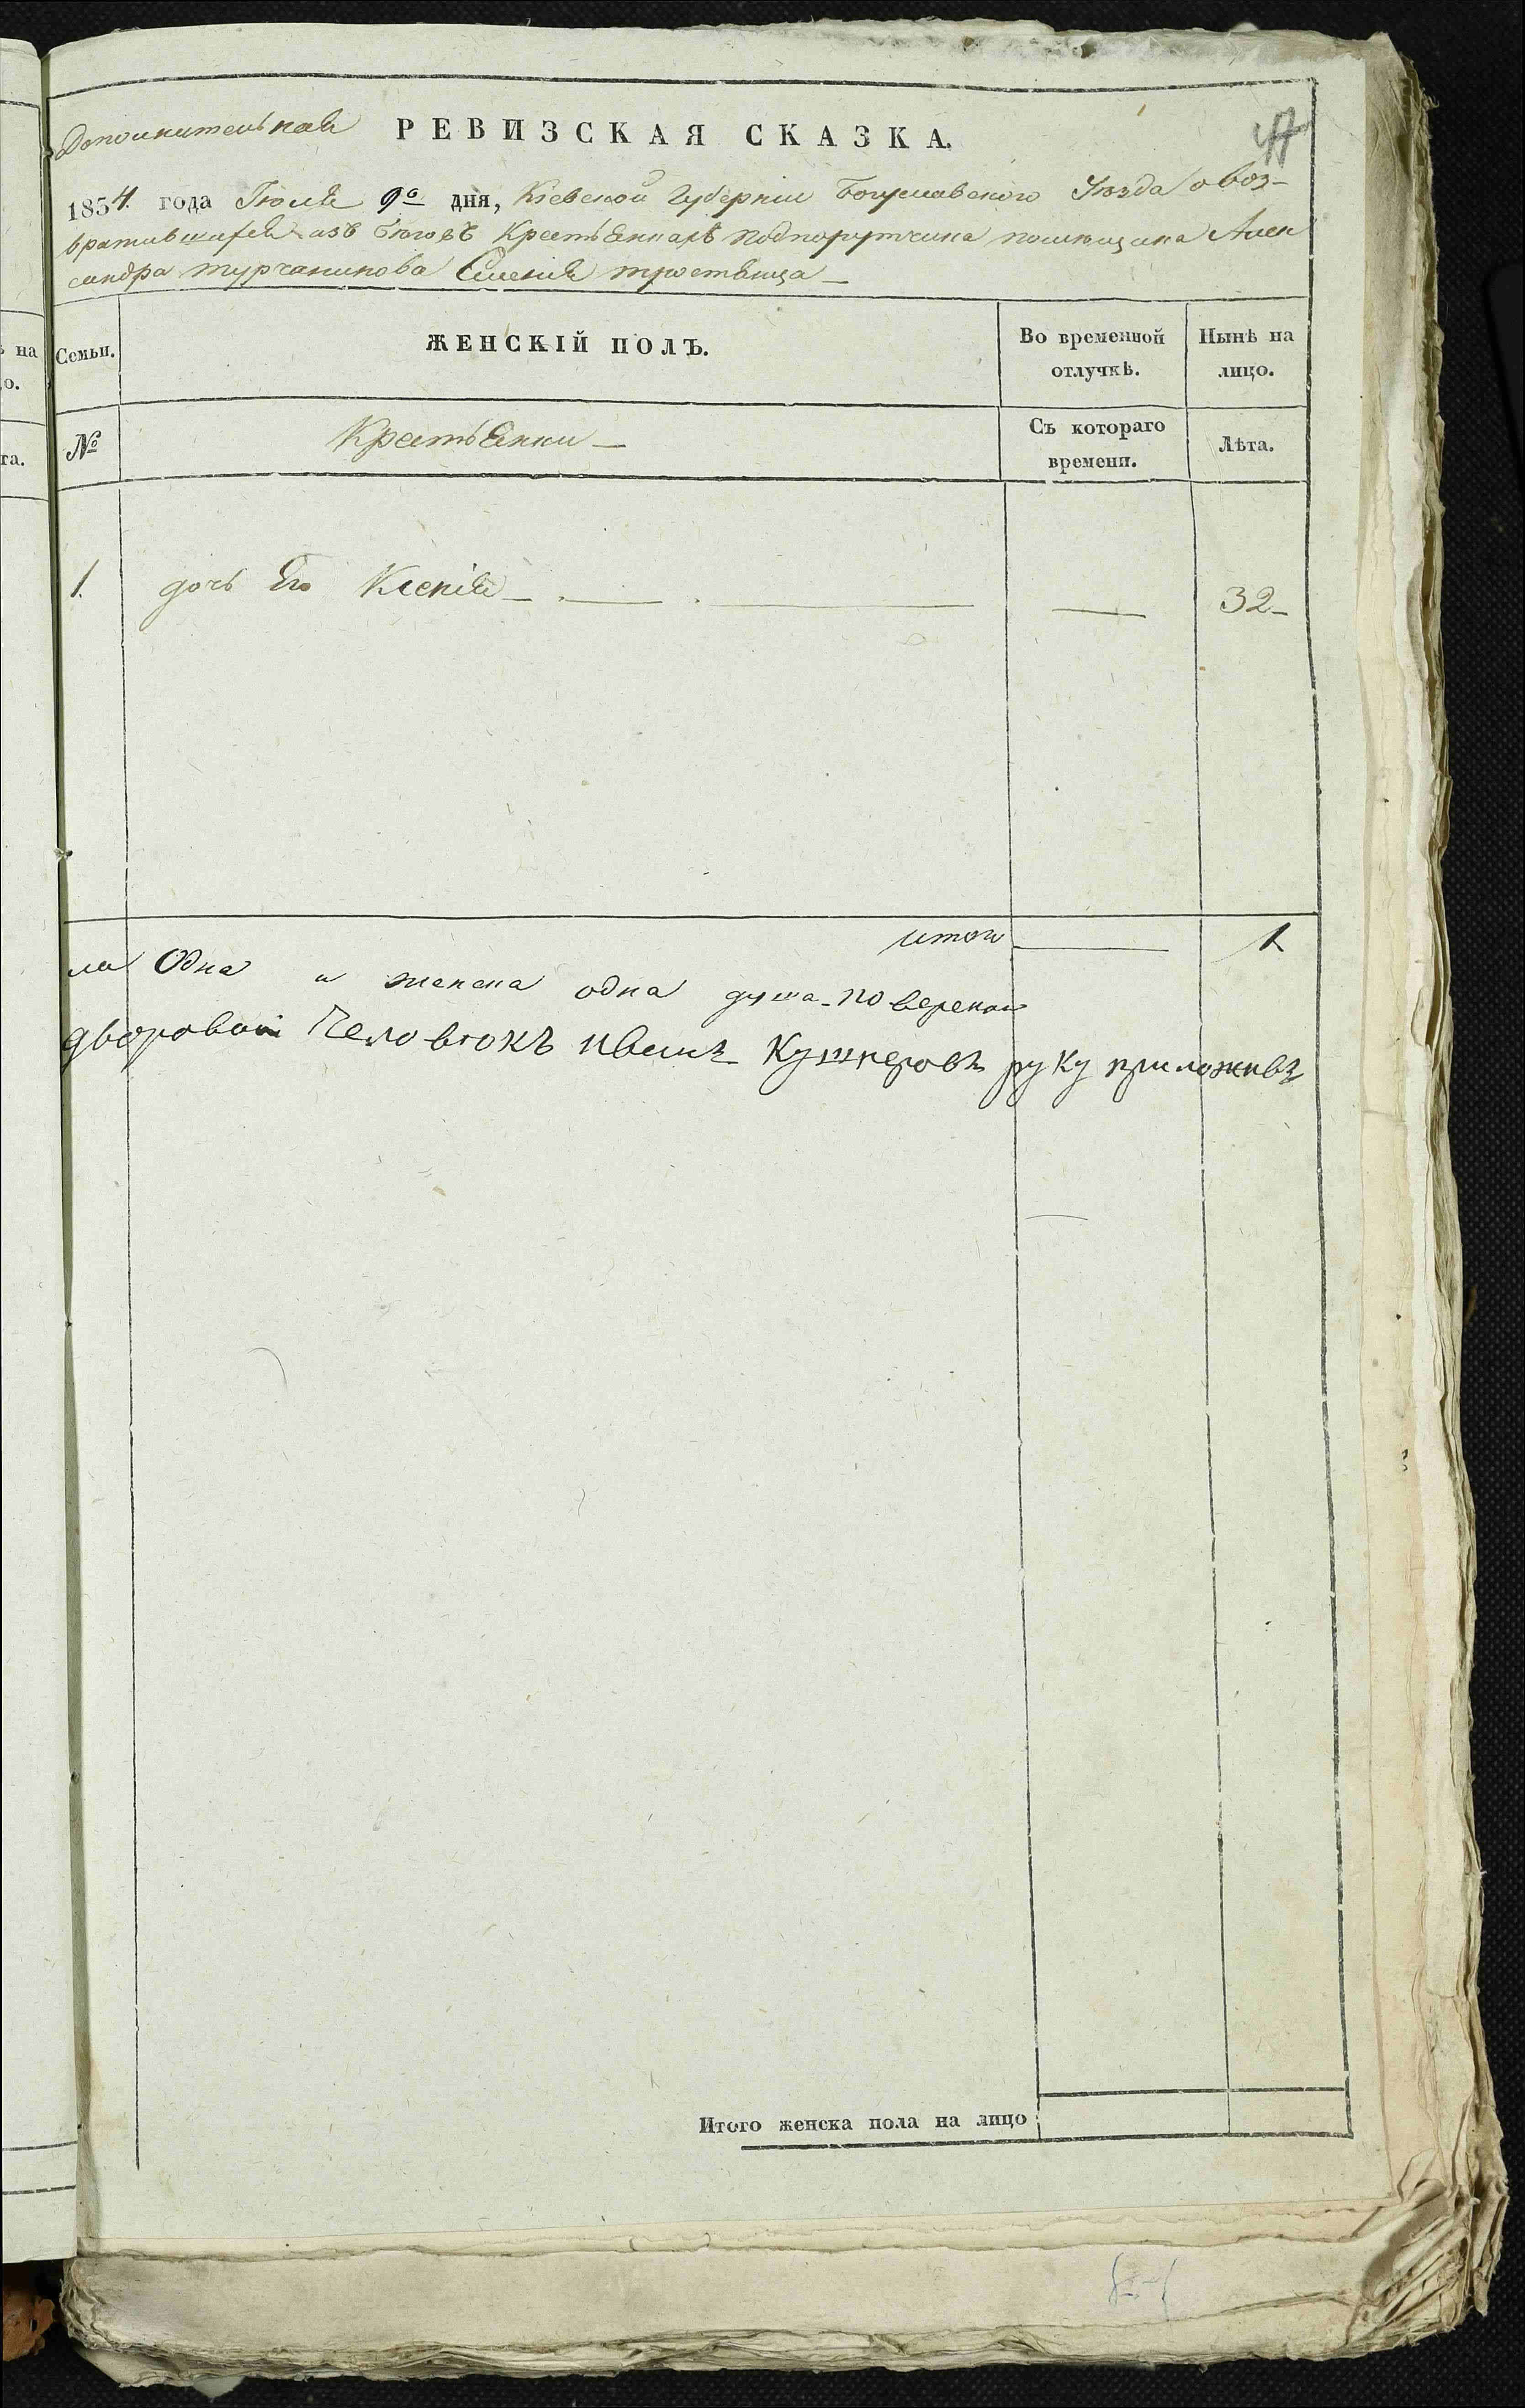 Дополнительная РЕВИЗСКАЯ СКАЗКА.
47
1854 года Іюля 9го дня, Кіевской Губерніи Богуславского Уѣзда о воз-
вратившихся изъ бѣговъ крестьянахъ подпорутчика помѣщика Алек
сандра Турчанинова Имения Тростянца
Семьи. ЖЕНСКІЙ ПОЛЪ. Во временной отлучкѣ. Нынѣ на лицо.
№ Крестьянки Съ котораго времени. Лѣта.
1. дочь Его Ксенія — — 32
итого — 1
ла Одна и женска одна душа - поверенный
дворовой Человѣкъ иванъ Кушнеровъ руку приложивъ
Итого женска пола на лицо
на
о.
та.